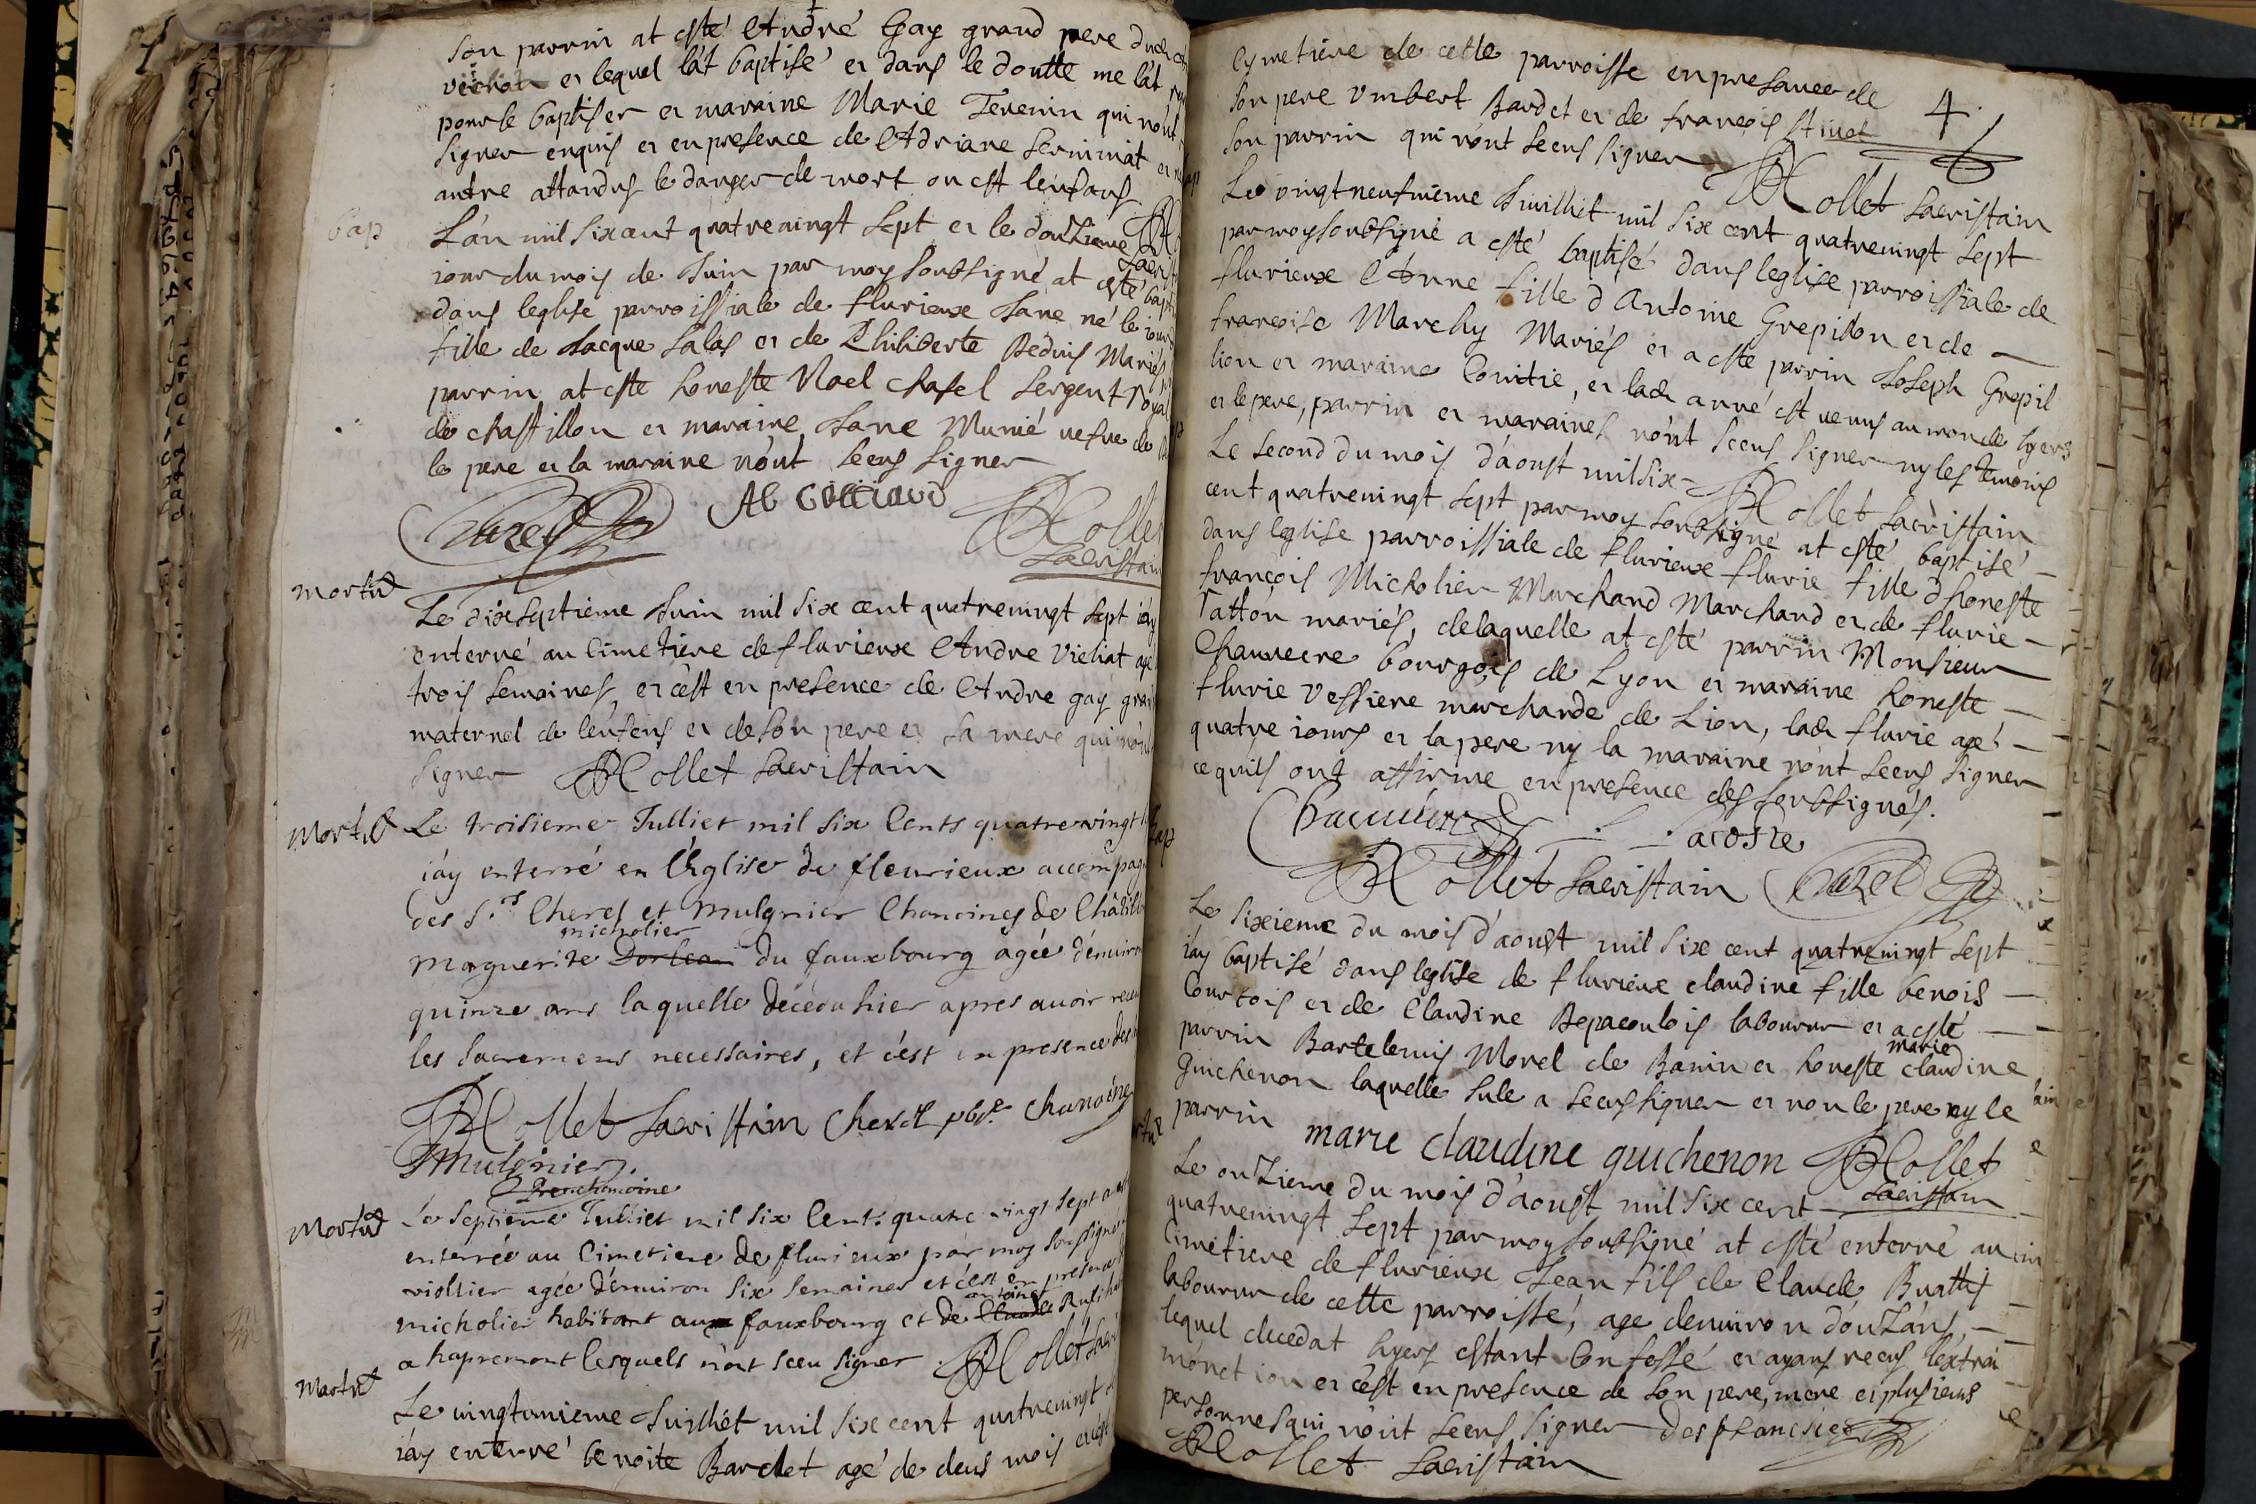 son parrin at esté André Gay grand pere dud
er lequel lat baptisé er dans le doutte me lat
pour le baptiser er maraine Marie Tevenin qui nont
signer enquis er en presence de Adriane
autre attandus le danger de mort ou est lenfans
bap
Lan mil sixcent quatrevingt sept er le douzieme
iour du mois de Juin par moy soubsigné at esté bapti
dans leglise parroissiale de flurieux Jane né le iour
fille de Jacque Salas er de Philiberte Beduis Mariés
parrin at este honeste Noel chasel sergent royal
de chastillon er maraine Jane Munié vefve de
le pere er la maraine nont sceus signer
Rollet
sacristain
Mortus
Le dixseptieme Juin mil six cent quatrevingt sept iay
enterré au Cimetiere de flurieux Andre Vieliat agé
trois semaines, er cest en presence de Andre gay gran
maternel de lenfens er de son pere er sa mere qui nont
signer Rollet sacristain
Mortus
Le troisieme Julliet mil six Cents quatre vingt
iay enterré en l'Eglise de fleurieux accompag
des S.rs Cheret et mulgnier Chanoines de Châtill
micholier
marguerite du fauxbourg agée d'enuiron
quinze ans laquelle décéda hier apres auoir receu
les sacremens necessaires, et c'est en presence des
Rollet sacristain Cheret pbre. chanoine
Mulgnier
Mortus
Le septieme Julliet mil six Cents quatre vingt sept a esté
enterrée au Cimetiere de flurieux par moy soussigné
viollier agée d'enuiron six semaines et c'est en presence
antoine
micholier habitant aux fauxbourg et de
a hapremont lesquels n'ont sceu signer Rollet
Mortus
Le vingtunieme Juilliet mil six cent quatrevingt
iay enterré benoite Bardet agé de deus mois
Cymetiere de cette parroisse en presance de
4
son pere Umbert Bardet er de françois
son parrin qui nont sceus signer
Rollet sacristain
Le vingtneufvieme Juilliet mil six cent quatrevingt sept
par moy soubsigné a esté baptisé dans leglise parroissiale de
flurieux Anne fille d Antoine Grepillon er de
françoise Marchy Mariés er a este parrin Joseph Grepil
lion er maraine er lad. anné est venus au monde hyers
er le pere, parrin er maraines nont sceus signer ny les temoins
Rollet sacristain
Le second du mois d'aoust mil six
cent quatrevingt sept par moy soubsigné at esté baptisé
dans leglise parroissiale de flurieux flurie fille d honeste
françois Micholier Marchand Marchand er de flurie
Tatton mariés, delaquelle at esté parrin Monsieur
Chauvere bourgois de Lyon er maraine honeste
flurie Vessiere marchande de Lion, lad. flurie agé
quatre iours er la pere ny la maraine nont sceus signer
ce quils ont affirme en presence des soubsignés.
Lacoste
Rollet sacristain
Le sixieme du mois d'aoust mil six cent quatrevingt sept
iay baptisé dans leglise de flurieux claudine fille benois
Courtois er de Claudine Bepacoulois labourur er a esté
marie
parrin Bartelemis Morel de Banin er honeste claudine
Guichenon laquelle sule a sceus signer er non le pere ny le
parrin
marie claudine guichenon Rollet
sacristain
Le onzieme du mois d'aoust mil six cent
quatrevingt sept par moy soubsigné at esté enterré au
Cimetiere de flurieux Jean fils de Claude Buattis
labourur de cette parroisse, age denuiron d'ouzans
lequel decedat hyers estant Confessé er ayans receus lextrai
monct ion er cest en presence de son pere, mere er plusieurs
personnes qui nont sceus signer
Rollet sacristain